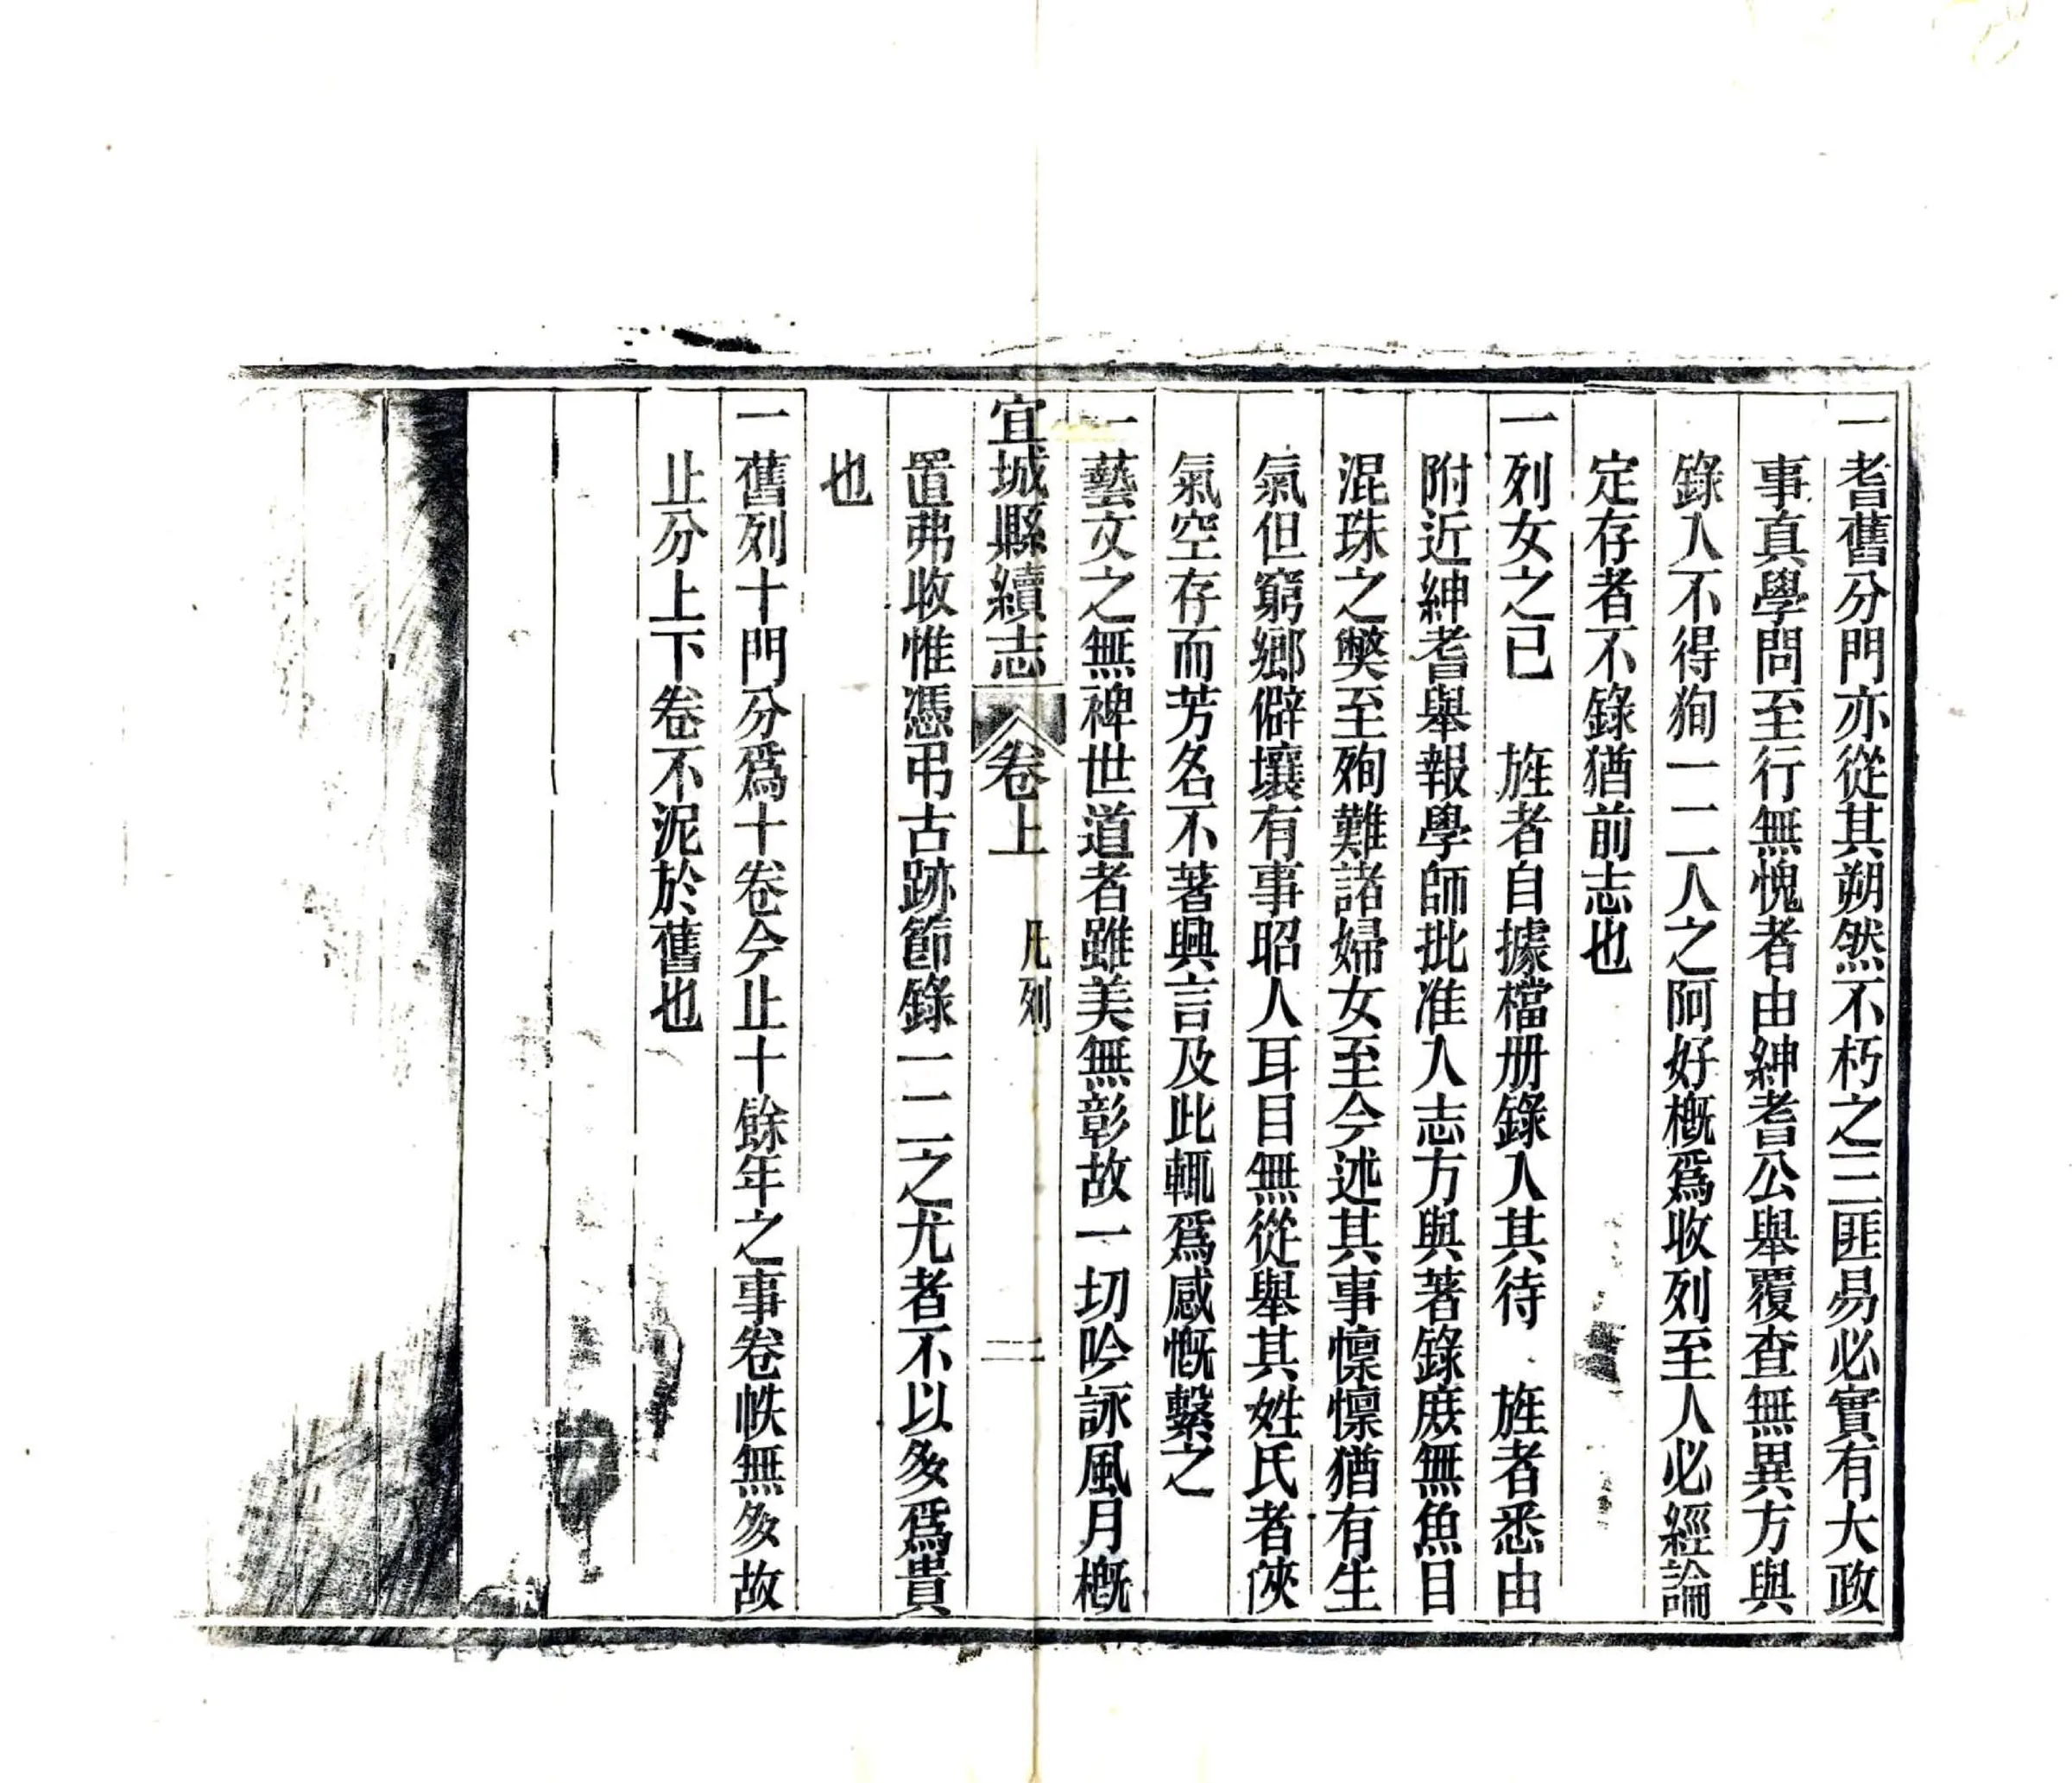 一耆舊分門亦從其朔然不朽之三匪易必實有大政
事真學問至行無愧者由紳耆公舉覆查無異方與
錄人不得狥一二人之阿好槪爲收列至人必經論
定存者不錄猶前志也
一列女之已 旌者自據檔册錄入其待 旌者悉由
附近紳耆舉報學師批准入志方與著錄庻無魚目
混珠之獘至殉難諸婦女至今述其事懍懍猶有生
氣但窮鄉僻壤有事昭人耳目無從舉其姓氏者俠
氣空存而芳名不著興言及此輒爲感慨繫之
一藝文之無裨世道者雖美無彰故一切吟詠風月槪
宜城縣續志 卷上 凡列 二
置弗收惟憑弔古跡節錄一二之尤者不以多爲貴
也
一舊列十門分爲十卷今止十餘年之事卷帙無多故
止分上下卷不泥於舊也